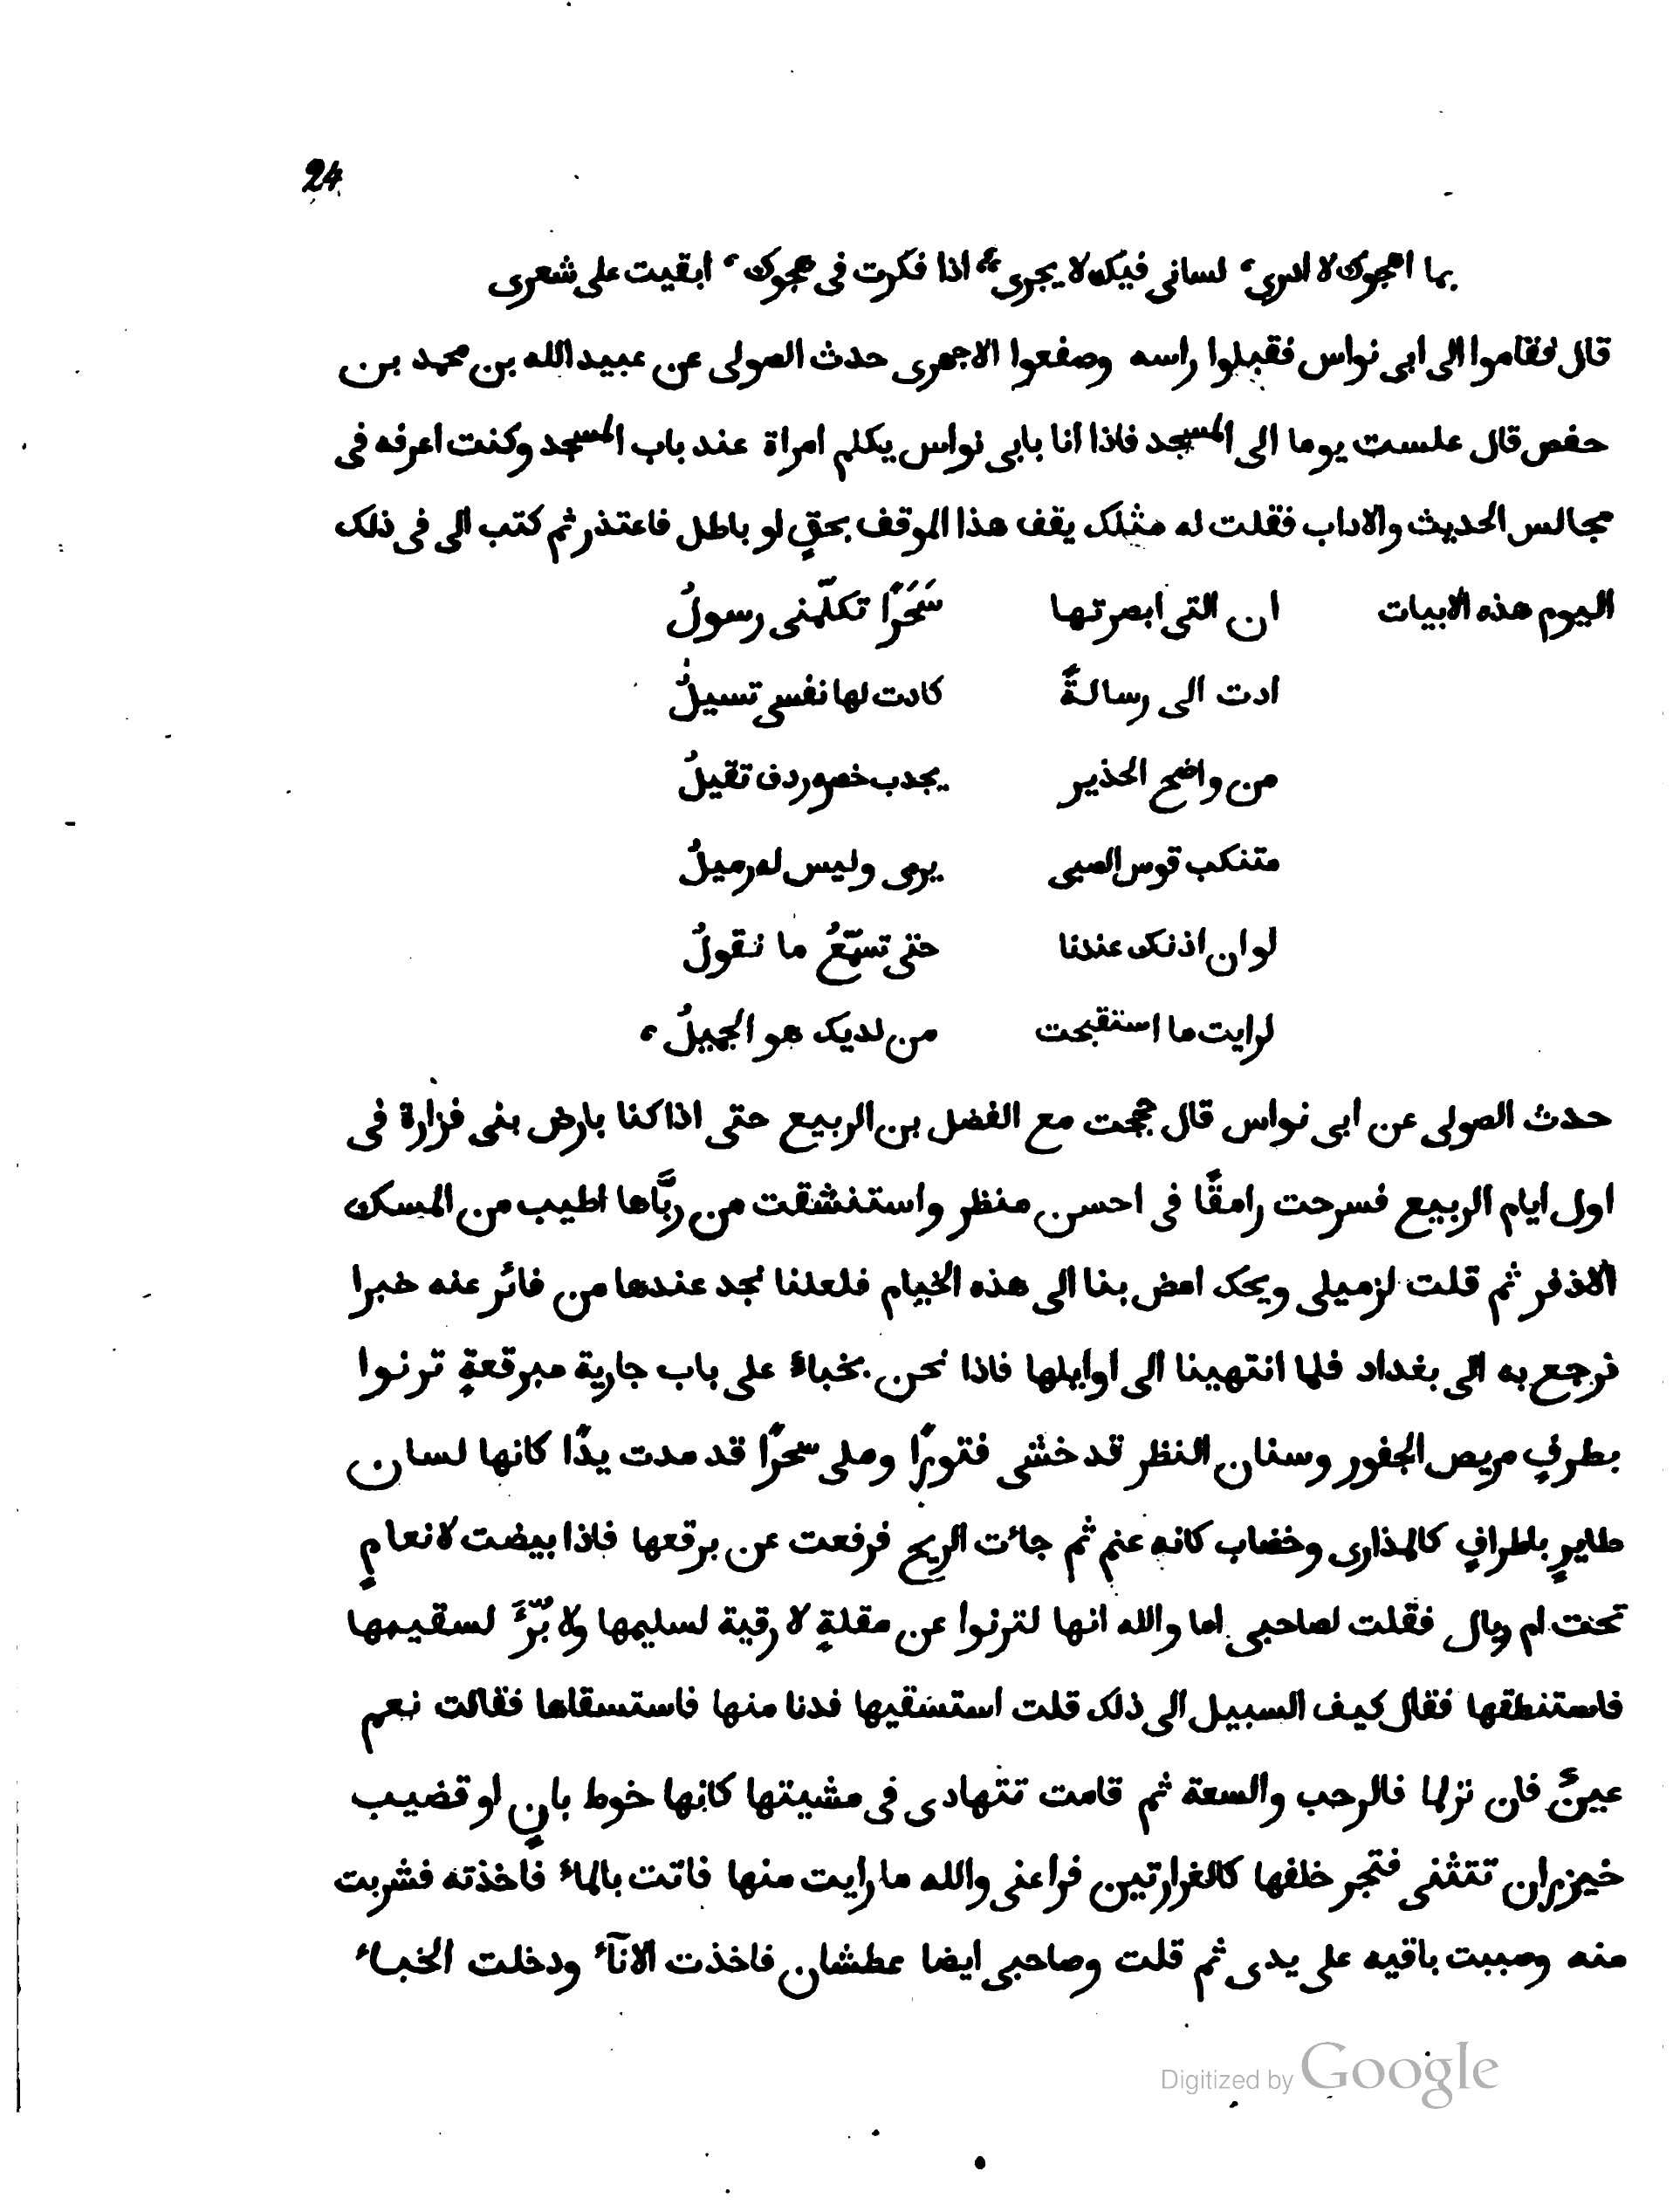 24
بما اهجوك لا ادرى، لسانى فيك لا يجرى، اذا فكرت فى هجوك، ابقيت على شعرى
قال فقاموا الى ابى نواس فقبلوا راسه وصفعوا الاجهرى حدث الصولى عن عبيد الله بن محمد بن
حفص قال غلست يوما الى المسجد فاذا انا بابى نواس يكلم امراة عند باب المسجد وكنت اعرفه فى
مجالس الحديث والاداب فقلت له مثلك يقف هذا الموقف بحقٍ او باطل فاعتذر ثم كتب الى فى ذلك
اليوم هذه الابيات ان التى ابصرتها سَحَرًا تكلّمنى رسولُ
ادت الى رسالةً كادت لها نفسى تسيلُ
من واضح الخدير يجدب خصره ردف تقيلُ
متنكب قوس الصبى يرمى وليس له رميلُ
لو ان اذنك عندنا حتى تسمّعُ ما نقولُ
لرايت ما استقبحت من لديك هو الجميلُ،
حدث الصولى عن ابى نواس قال حججت مع الفضل بن الربيع حتى اذا كنا بارض بنى فزارة فى
اول ايام الربيع فسرحت رامقًا فى احسن منظر واستنشقت من ربَّاها اطيب من المسك
الاذفر ثم قلت لزميلى ويحك امض بنا الى هذه الخيام فلعلنا نجد عندها من فائر عنه خبرا
نرجع به الى بغداد فلما انتهينا الى اوايلها فاذا نحن بخباء على باب جارية مبرقعةٍ ترنوا
بطرفٍ مريض الجفور وسنان النظر قد خشى فتورًا وملى سحرًا قد مدت يدًا كانها لسان
طايرٍ باطرافٍ كالمذارى وخضاب كانه عنم ثم جائت الريح فرفعت عن برقعها فاذا بيضت لانعامٍ
تحت ام ريال فقلت لصاحبى اما والله انها لترنوا عن مقلةٍ لا رقية لسليمها ولا بُرّءَ لسقيمها
فاستنطقها فقال كيف السبيل الى ذلك قلت استسقيها فدنا منها فاستسقاها فقالت نعم
عينٌ فان نزلما فالرحب والسعة ثم قامت تتهادى فى مشيتها كانها خوط بانٍ او قضيب
خيزران تتثنى فتجر خلفها كالغرارتين فراعنى والله ما رايت منها فاتت بالماء فاخذته فشربت
منه وصببت باقيه على يدى ثم قلت وصاحبى ايضا عطشان فاخذت الانآء ودخلت الخباء
Digitized by Google